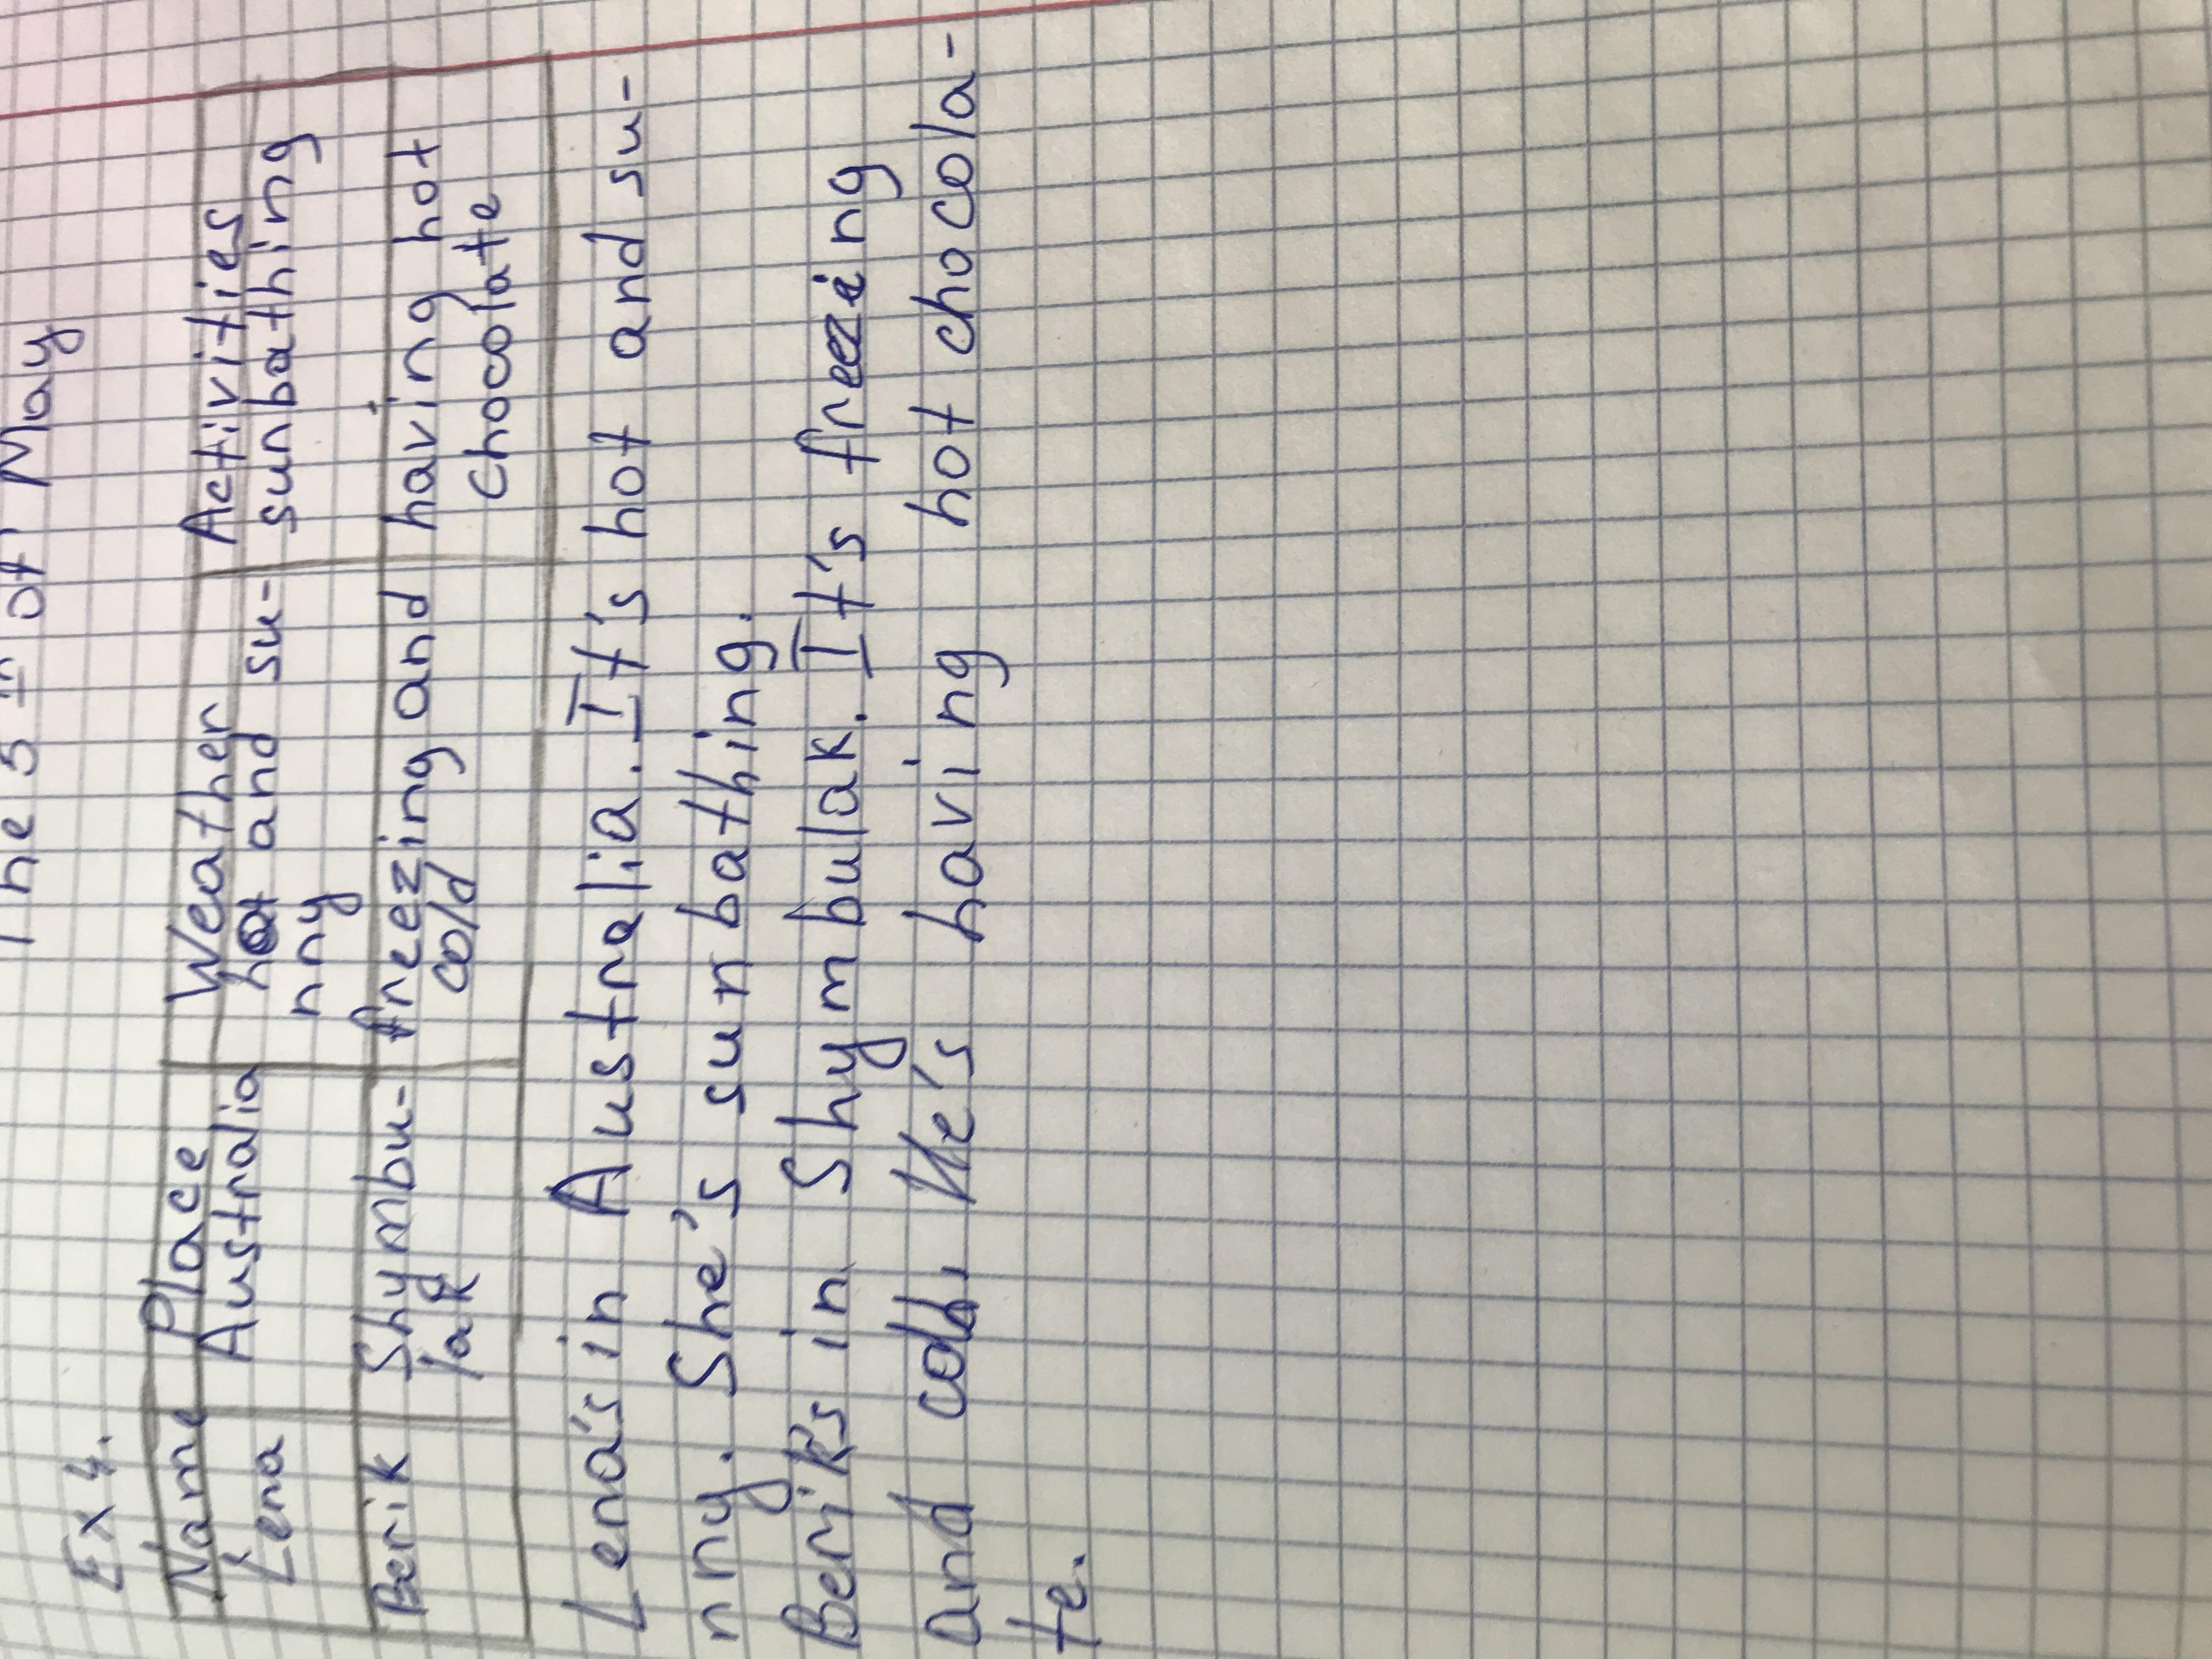 The 5th of May
Ex 4.
Name Place Weather Activities
Lena Australia hot and su- sunbathing
nny
Berik Shymbu- freezing and having hot
lak cold chocolate
Lena's in Australia. It's hot and su-
nny. She's sunbathing.
Berik's in Shymbulak. It's freezing
and cold. He's having hot chocola-
te.